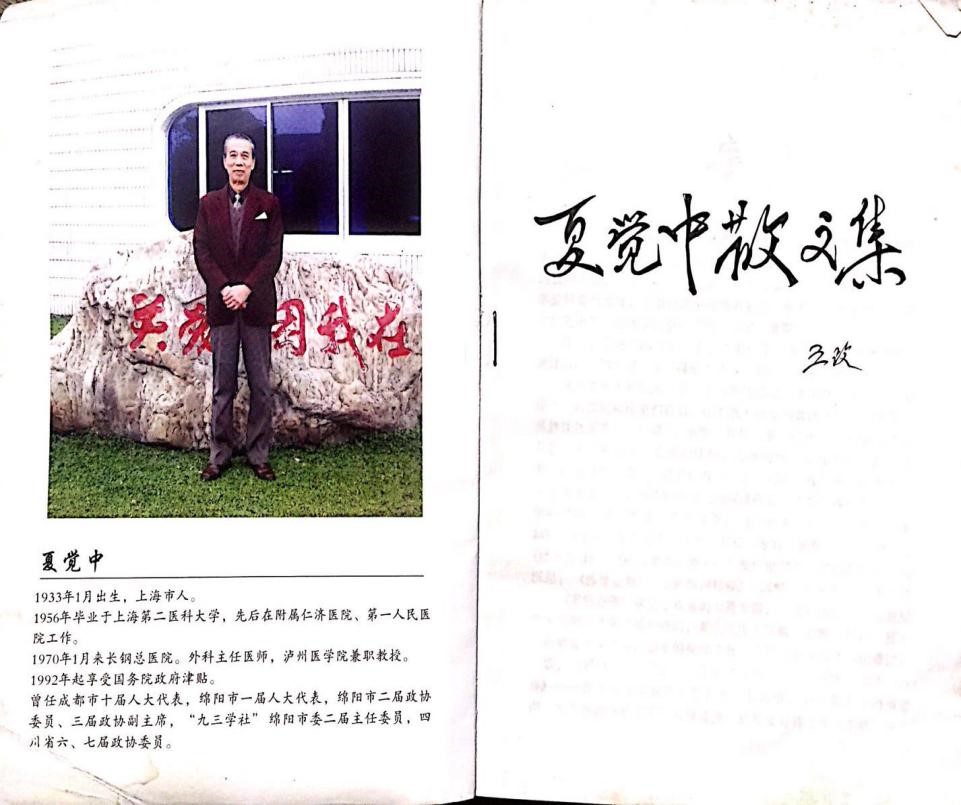 关教 因我在
夏觉中
1933年1月出生，上海市人。
1956年毕业于上海第二医科大学，先后在附属仁济医院、第一人民医
院工作。
1970年1月来长钢总医院。外科主任医师，泸州医学院兼职教授。
1992年起享受国务院政府津贴。
曾任成都市十届人大代表，绵阳市一届人大代表，绵阳市二届政协
委员、三届政协副主席，“九三学社”绵阳市委二届主任委员，四
川省六、七届政协委员。
夏觉中散文集